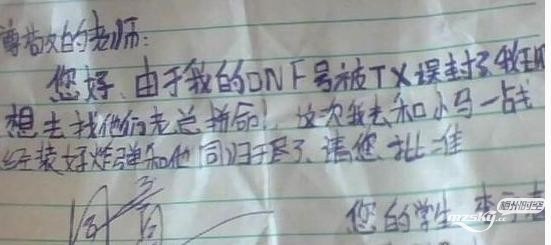 尊敬的老师:
您好,由于我的DNF号被TX误封了,我
想去找他们老总拼命!这次我去和小马一战
经装好炸弹和他同归于尽了,请您批准
您的学生
mzsky.cc